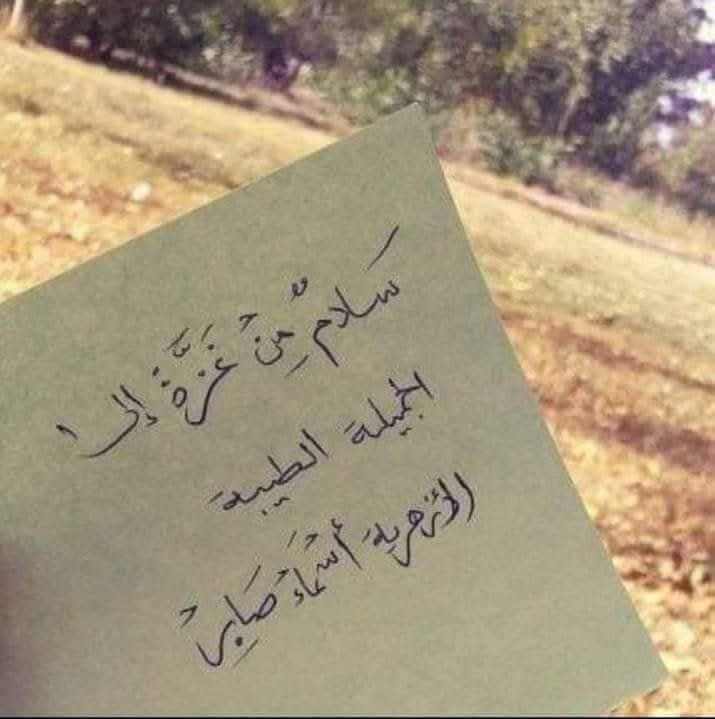 سَلامٌ مِنْ غَزَّةَ إلى
الجميلة الطيبة
الأزهرية أسْمَاءْ صَابِرْ